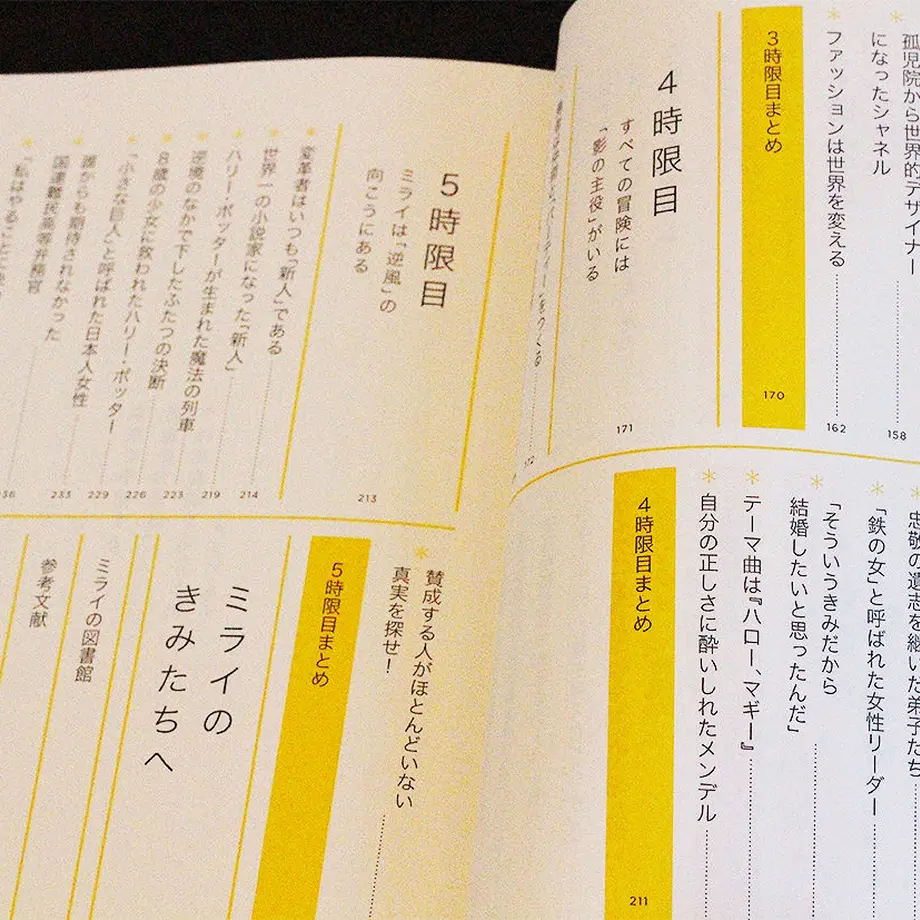 孤児院から世界的デザイナー
になったシャネル
158
ファッションは世界を変える
162
3時限目まとめ
170
4時限目
すべての冒険には
「影の主役」がいる
171
忠敬の遺志を継いだ弟子たち
「鉄の女」と呼ばれた女性リーダー
「そういうきみだから
結婚したいと思ったんだ」
テーマ曲は『ハロー、マギー』
自分の正しさに酔いしれたメンデル
4時限目まとめ
211
172
5時限目
ミライは「逆風」の
向こうにある
213
変革者はいつも「新人」である
214
世界一の小説家になった「新人」
219
ハリー・ポッターが生まれた魔法の列車
223
逆境のなかで下したふたつの決断
226
8歳の少女に救われたハリー・ポッター
229
「小さな巨人」と呼ばれた日本人女性
233
誰からも期待されなかった
国連難民高等弁務官
236
「私はやることに決
賛成する人がほとんどいない
真実を探せ!
5時限目まとめ
ミライの
きみたちへ
ミライの図書館
参考文献